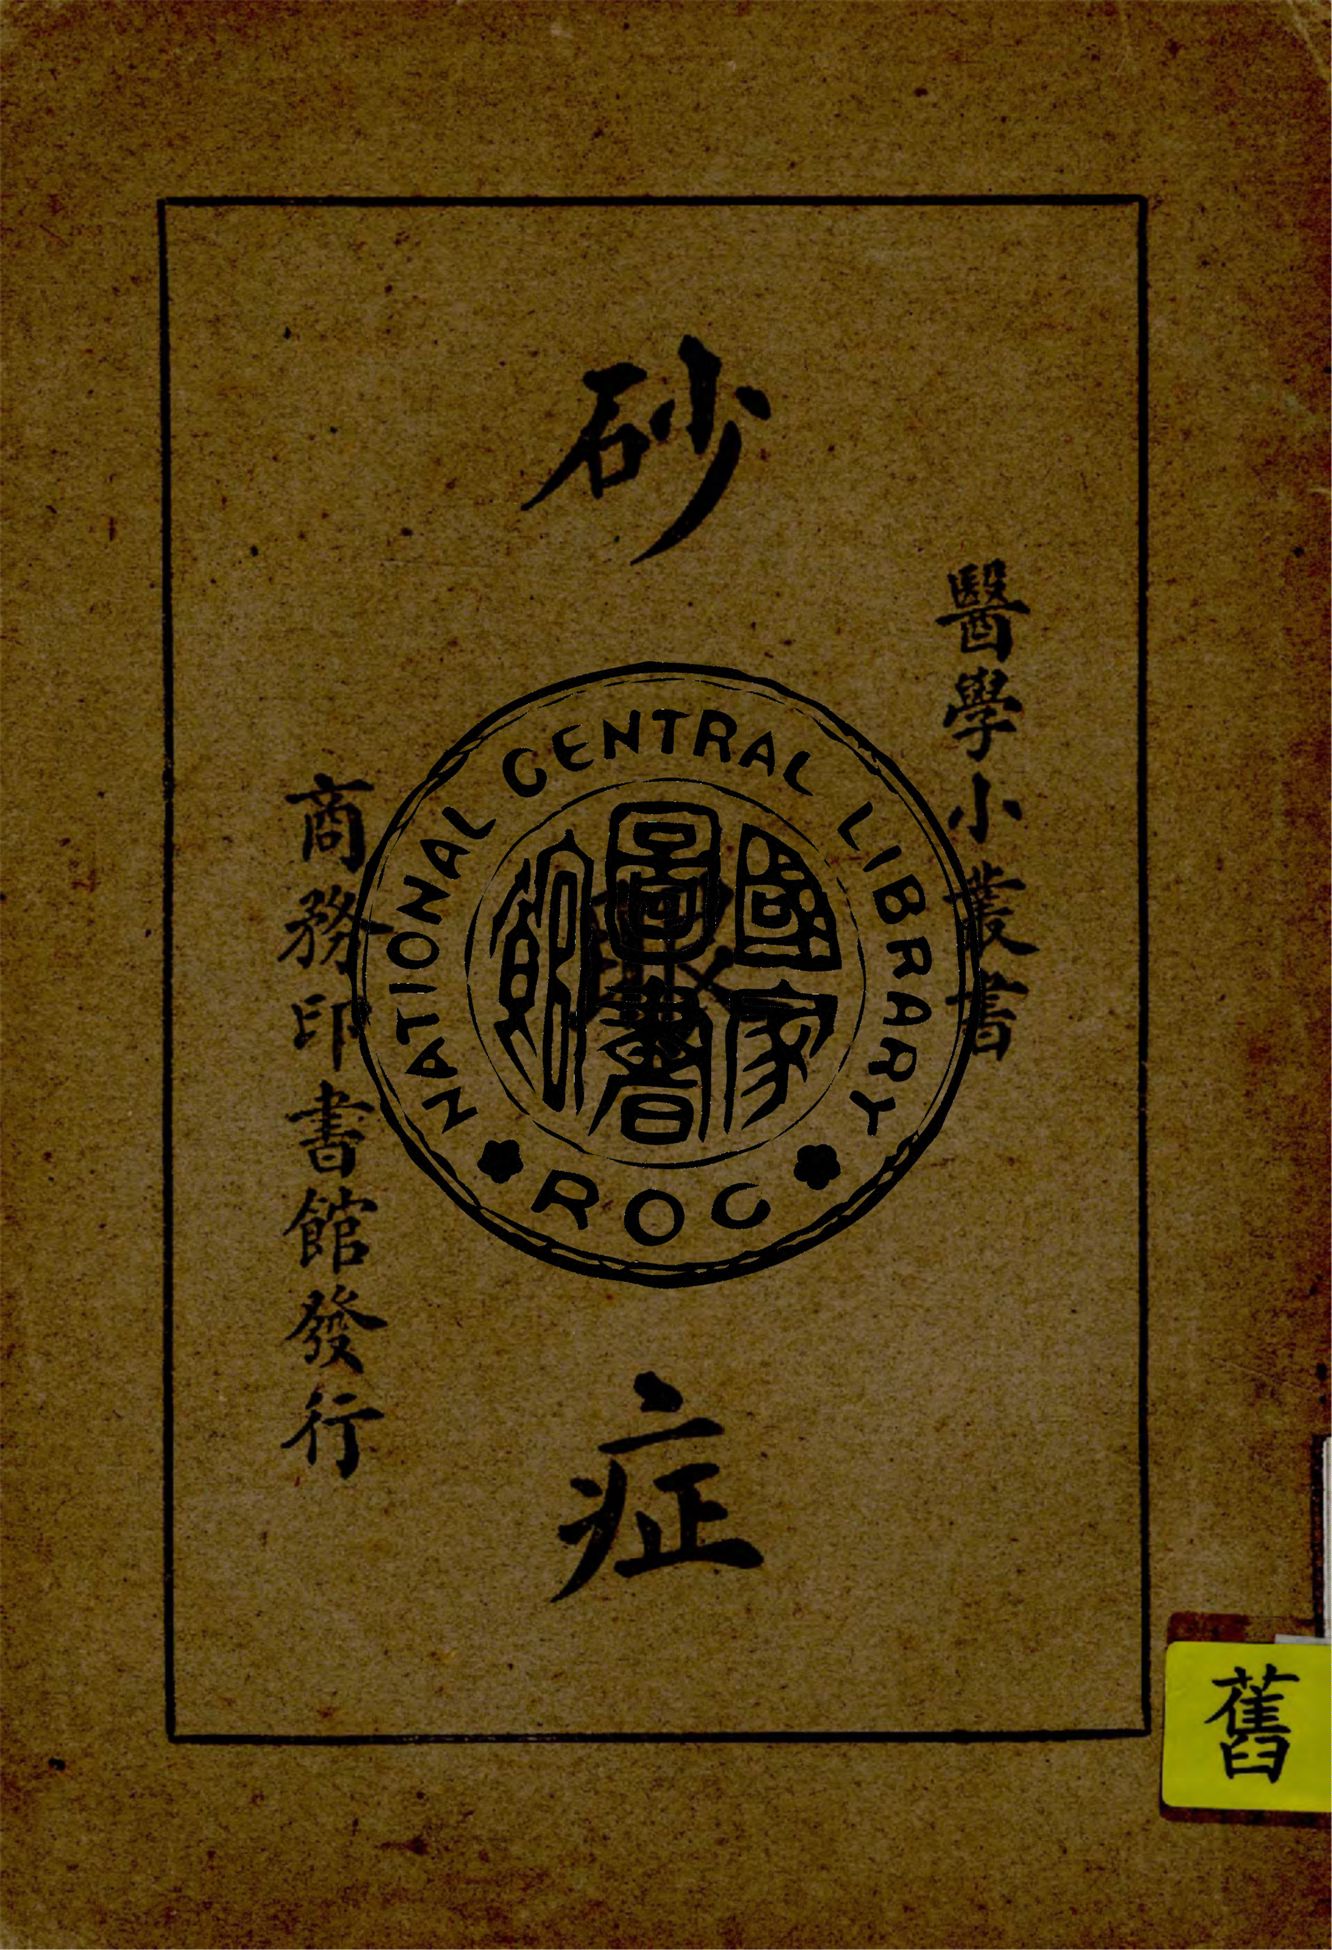 醫學小叢書
砂眼症
商務印書館發行
NATIONAL CENTRAL LIBRARY
國家圖書館
ROC
舊